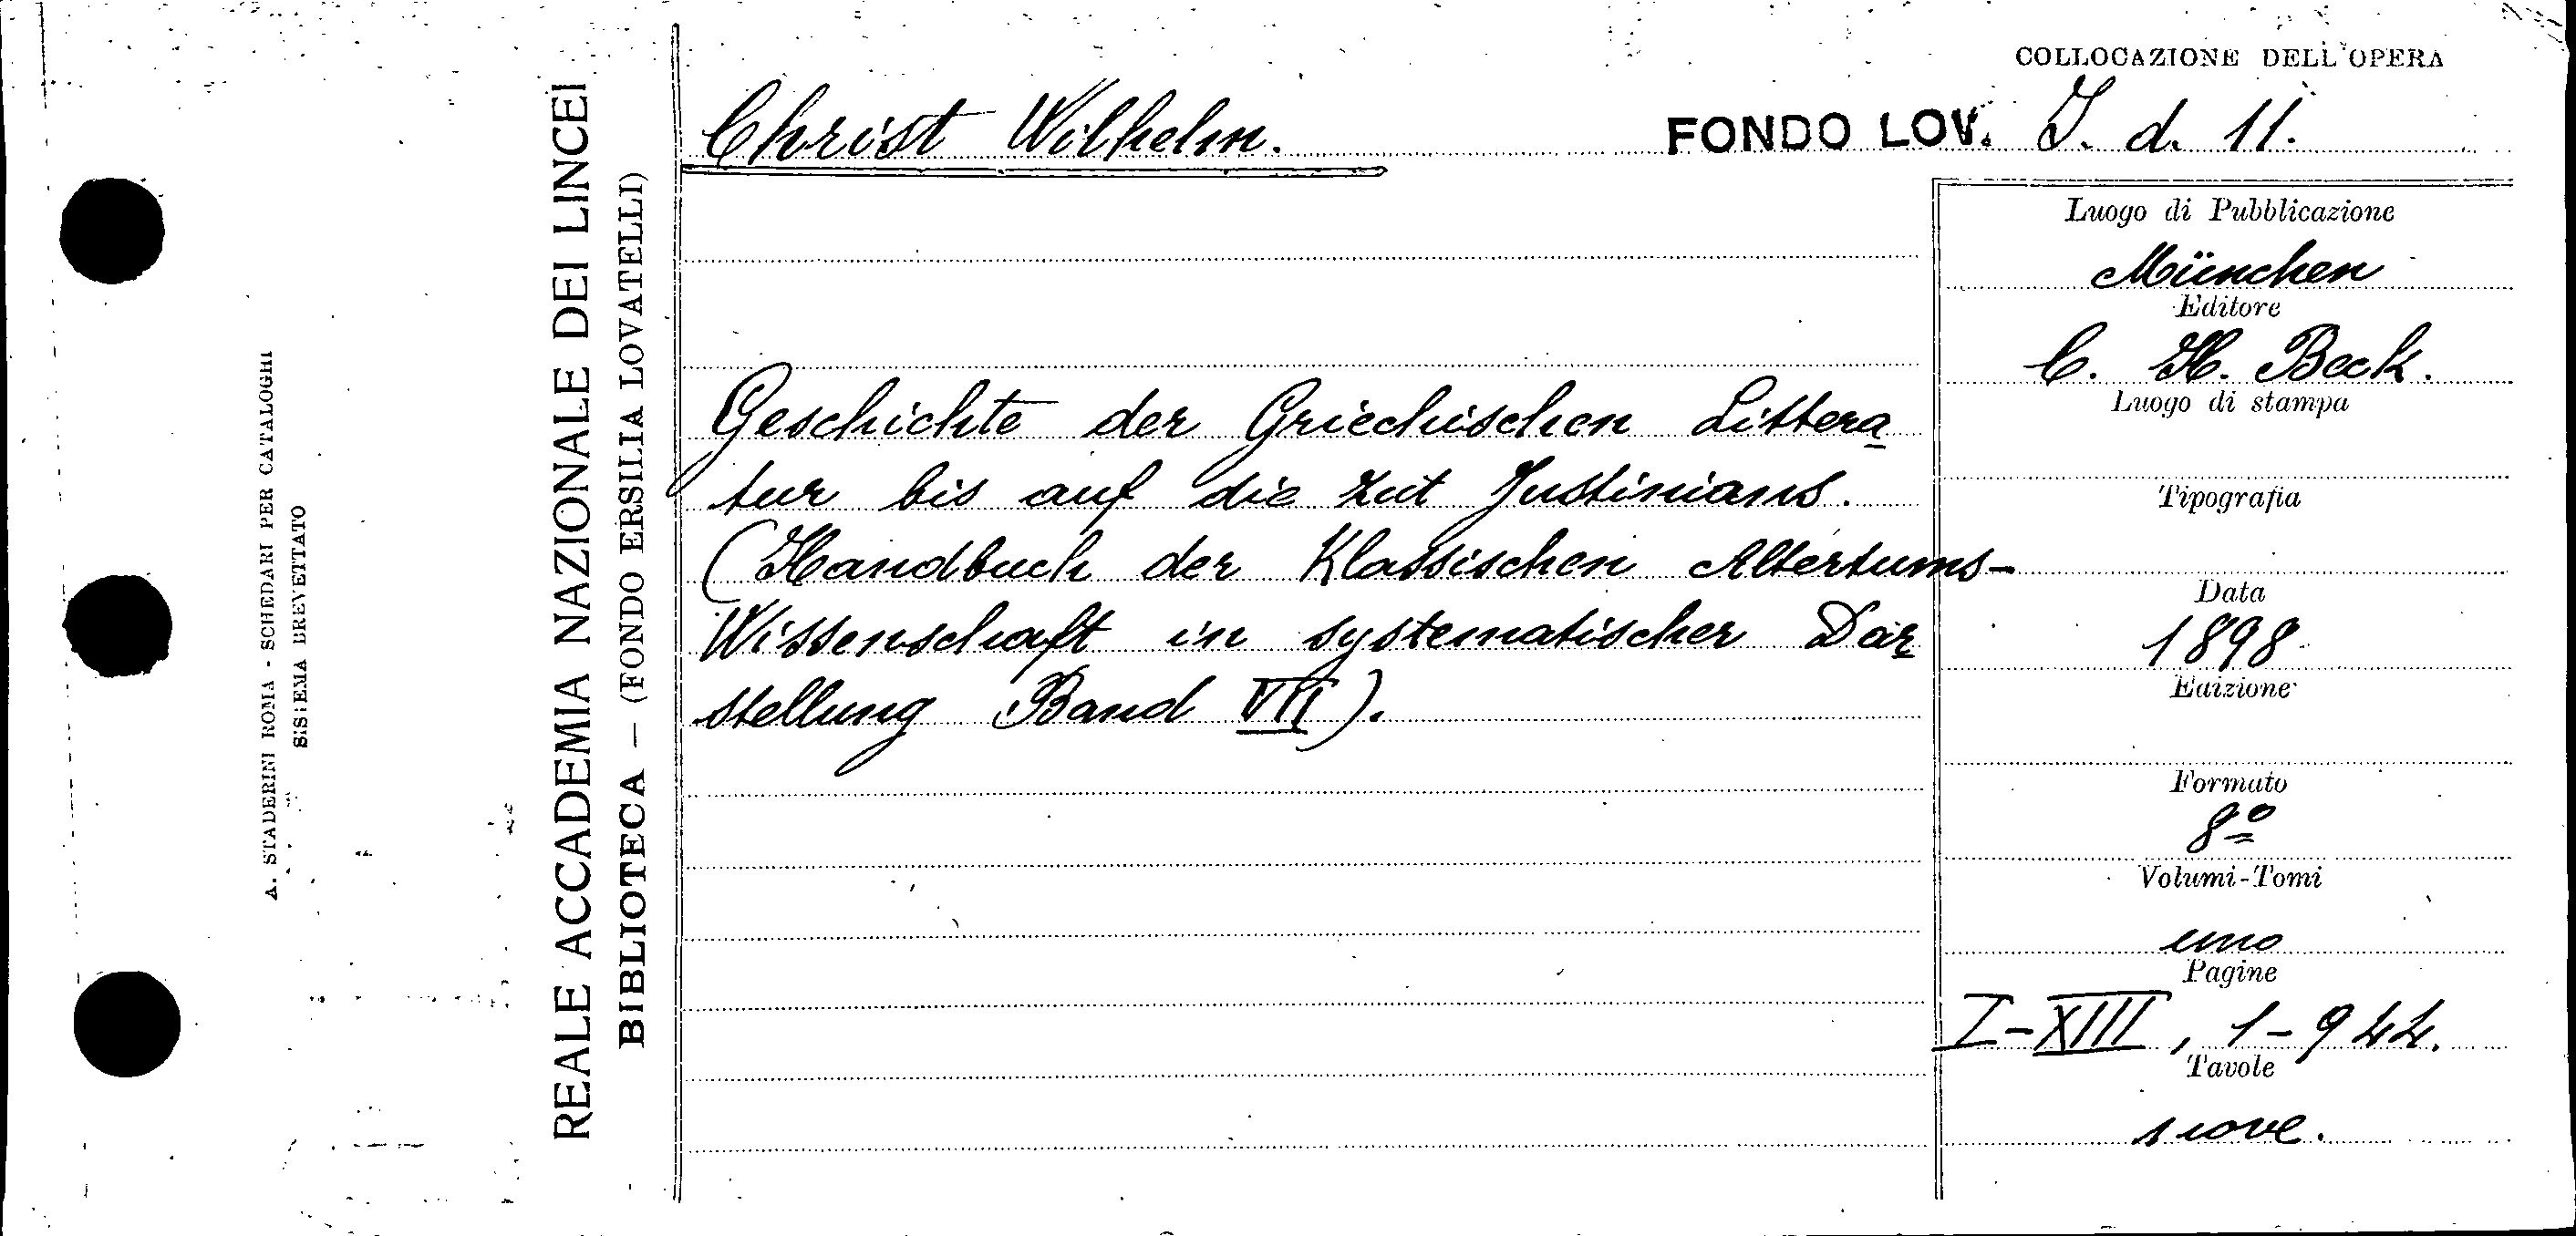 COLLOCAZIONE DELL'OPERA
Christ Wilhelm.
FONDO LOV. I. d. 11.
Geschichte der Griechischen Littera
tur bis auf die Zeit Justinians.
(Handbuch der Klassischen Altertums-
Wissenschaft in systematischer Dar
stellung Band VII).
Luogo di Pubblicazione
München
Editore
C. H. Beck.
Luogo di stampa
Tipografia
Data
1898
Edizione
Formato
8º
Volumi-Tomi
uno
Pagine
I-XIII, 1-944.
Tavole
nove.
REALE ACCADEMIA NAZIONALE DEI LINCEI
BIBLIOTECA — (FONDO ERSILIA LOVATELLI)
A. STADERINI ROMA - SCHEDARI PER CATALOGHI
SISTEMA BREVETTATO